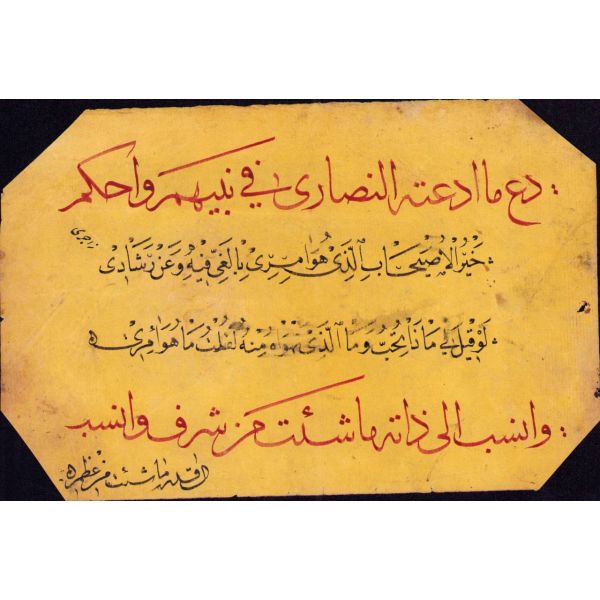 دع ما ادعته النصارى في نبيهم واحكم
خَيْرُ الْاُصَيْحَابِ الَّذِى هُوَ اٰمِرِى بِالْغَىِّ فِيْهِ وَعَنْ رَشَادِى زاجرى
لَوْ قِيْلَ لِى مَاذَا تُحِبُّ وَمَا الَّذِى تَهْوَاهُ مِنْهُ لَقُلْتُ مَا هُوَ اٰمِرِى
وانسب الى ذاته ما شئت من شرف وانسب
الى قدره ما شئت من عظم